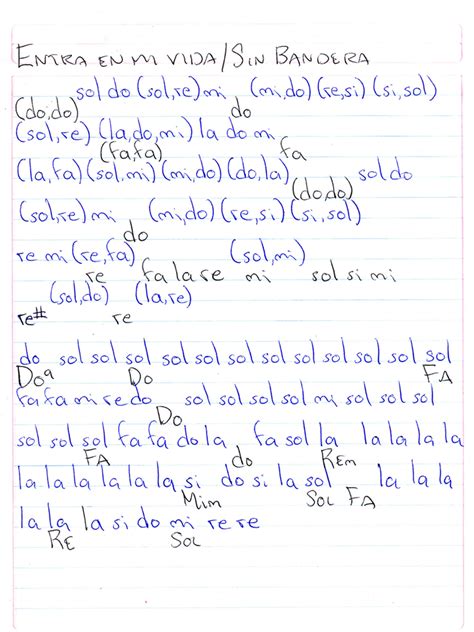 ENTRA EN MI VIDA/SIN BANDERA
sol do (sol,re) mi (mi,do) (re,si) (si,sol)
(do,do) do
(sol,re) (la,do,mi) la do mi
(fa,fa) fa
(la,fa) (sol,mi) (mi,do) (do,la) sol do
(do,do)
(sol,re) mi (mi,do) (re,si) (si,sol)
do
re mi (re,fa) (sol,mi)
re fa la re mi sol si mi
(sol,do) (la,re)
re# re
do sol sol sol sol sol sol sol sol sol sol sol sol
Do Do FA
fa fa mi re do sol sol sol sol mi sol sol sol
Do
sol sol sol fa fa do la fa sol la la la la la
FA do REm
la la la la la la si do si la sol la la la
Mim SOL FA
la la la si do mi re re
RE SOL